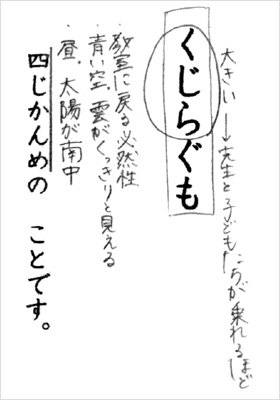 大きい→先生と子どもたちが乗れるほど
くじらぐも
・教室に戻る必然性
・青い空、雲がくっきりと見える
・昼、太陽が南中
四じかんめの ことです。